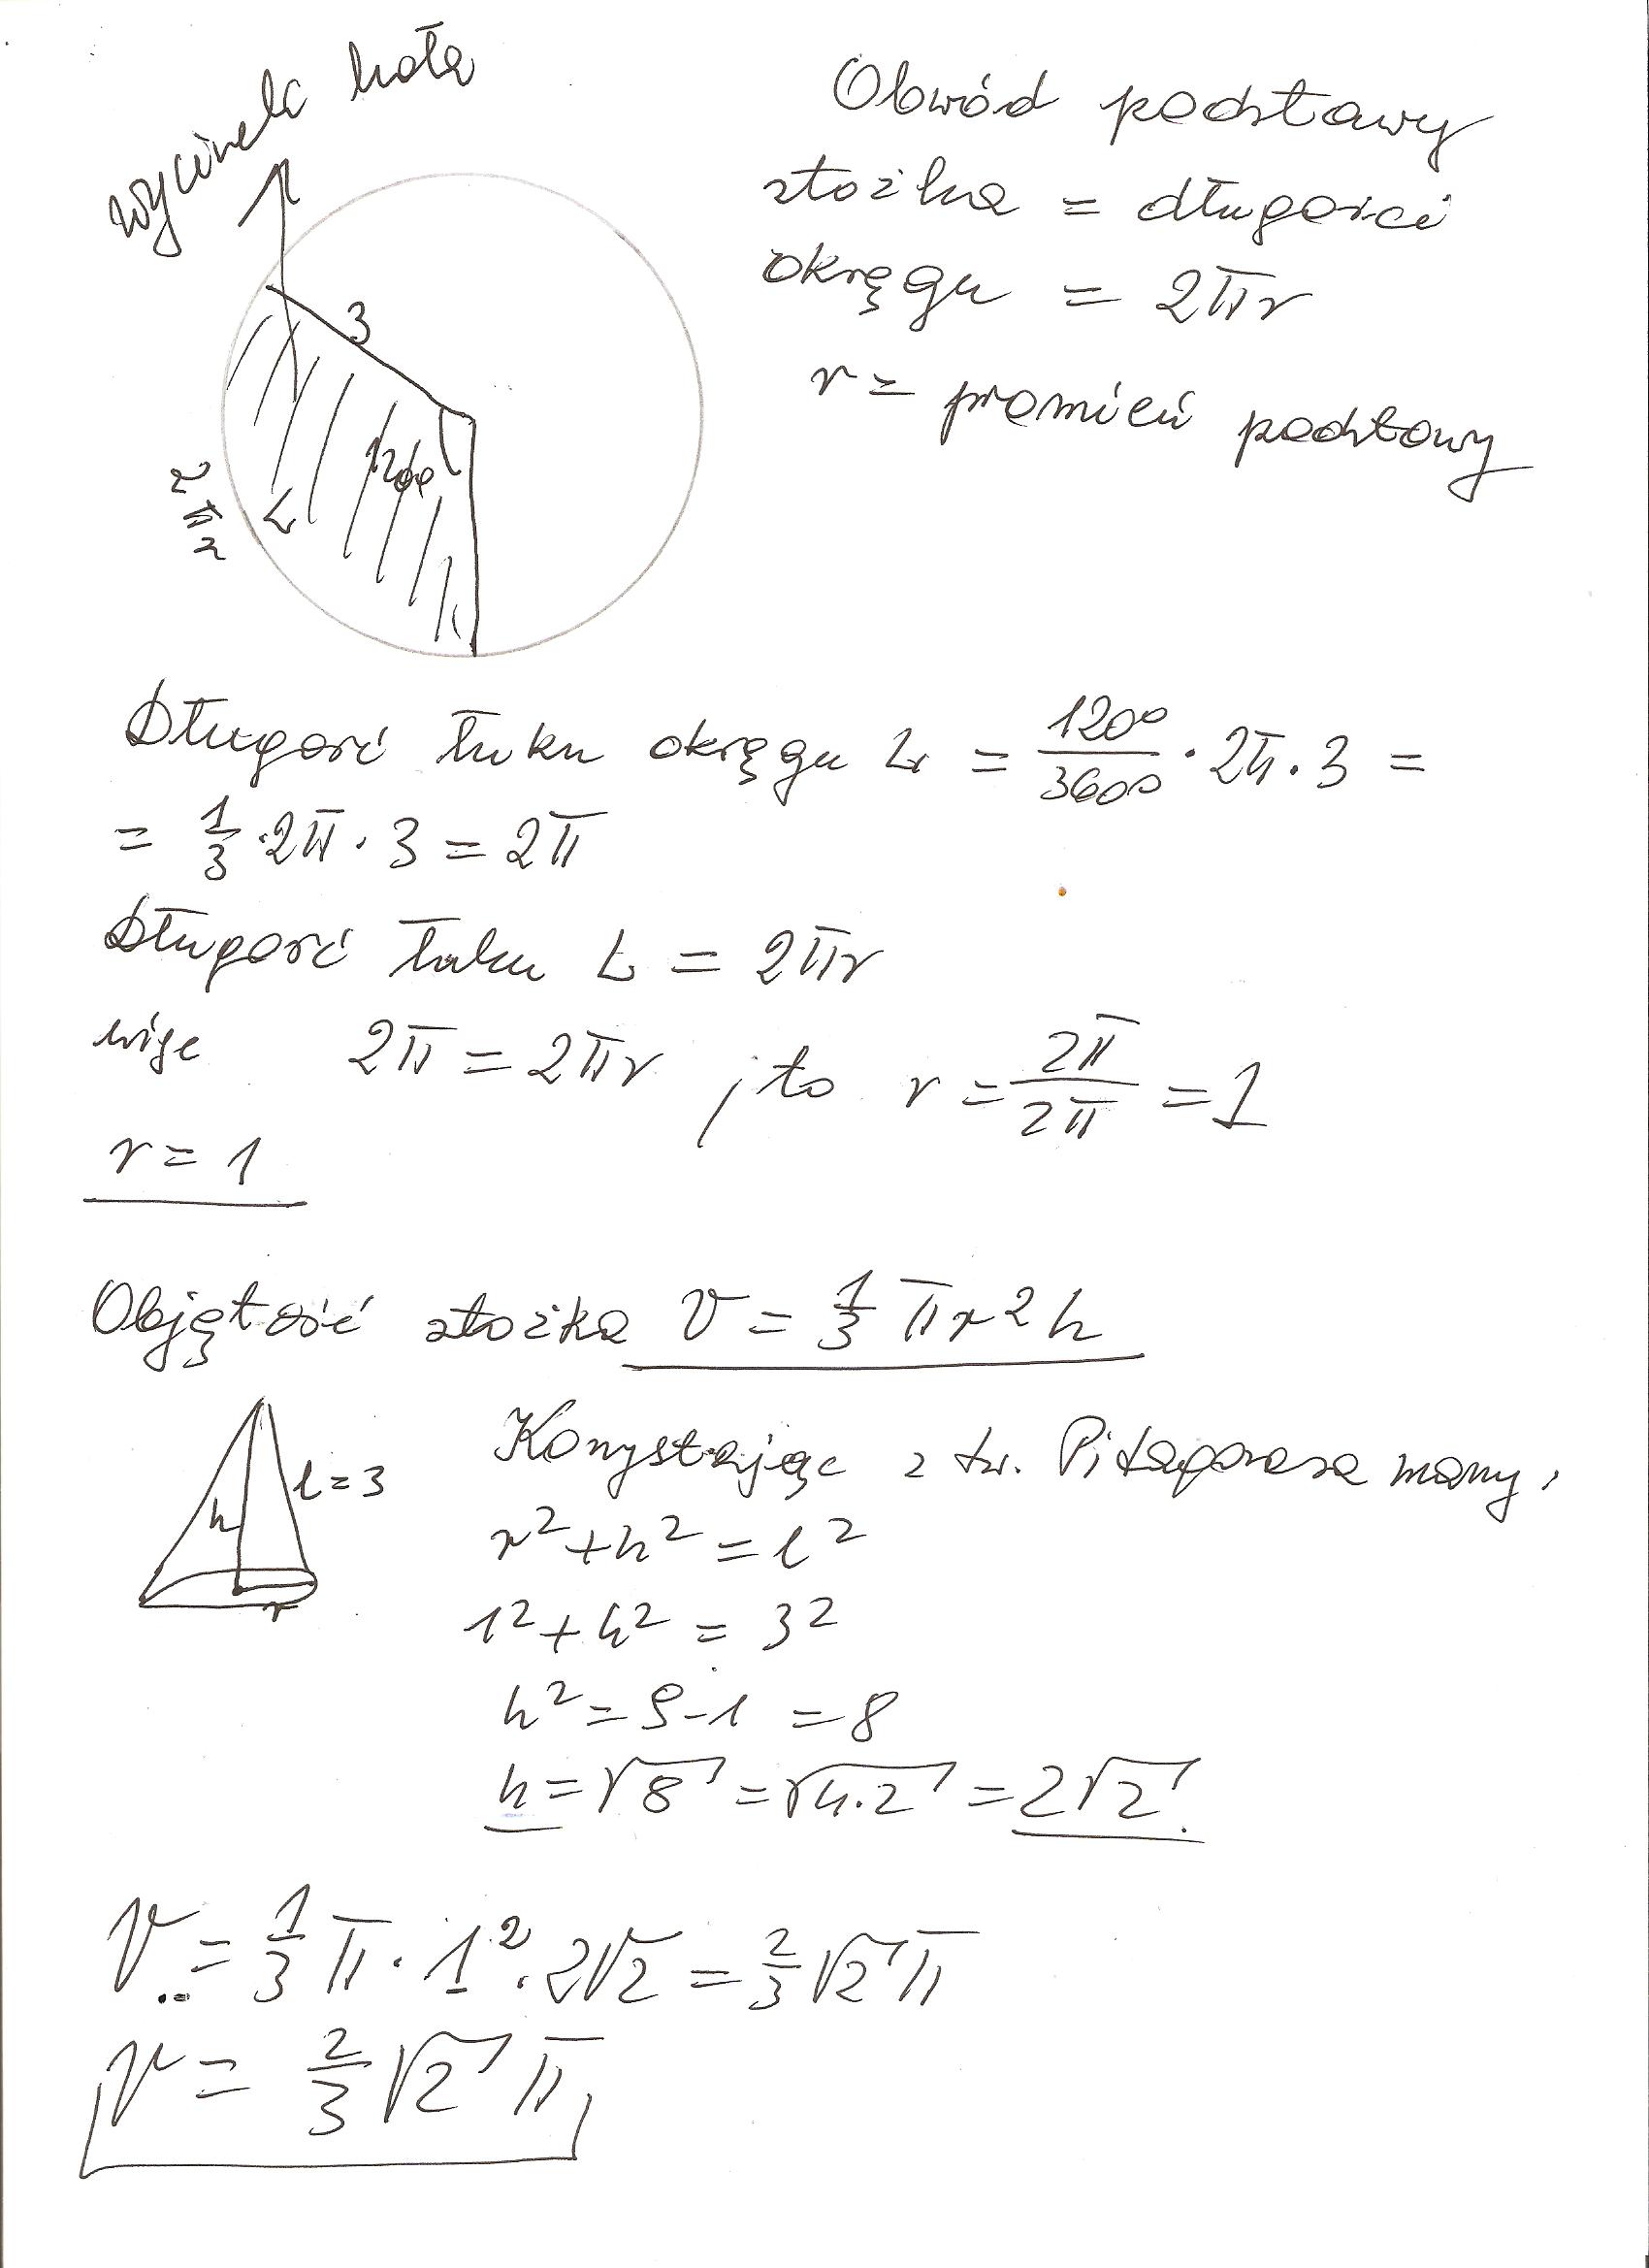 wycinek koła
3
120°
L
2πr
Obwód podstawy
stożka = długości
okręgu = 2πr
r = promień podstawy
Długość łuku okręgu L = 120°/360° · 2π · 3 =
= 1/3 · 2π · 3 = 2π
Długość łuku L = 2πr
więc 2π = 2πr, to r = 2π/2π = 1
r = 1
Objętość stożka V = 1/3 πr²h
h
l = 3
r
Korzystając z tw. Pitagorasa mamy,
r² + h² = l²
1² + h² = 3²
h² = 9 - 1 = 8
h = √8 = √4·2 = 2√2.
V = 1/3 π · 1² · 2√2 = 2/3 √2 π
V = 2/3 √2 π